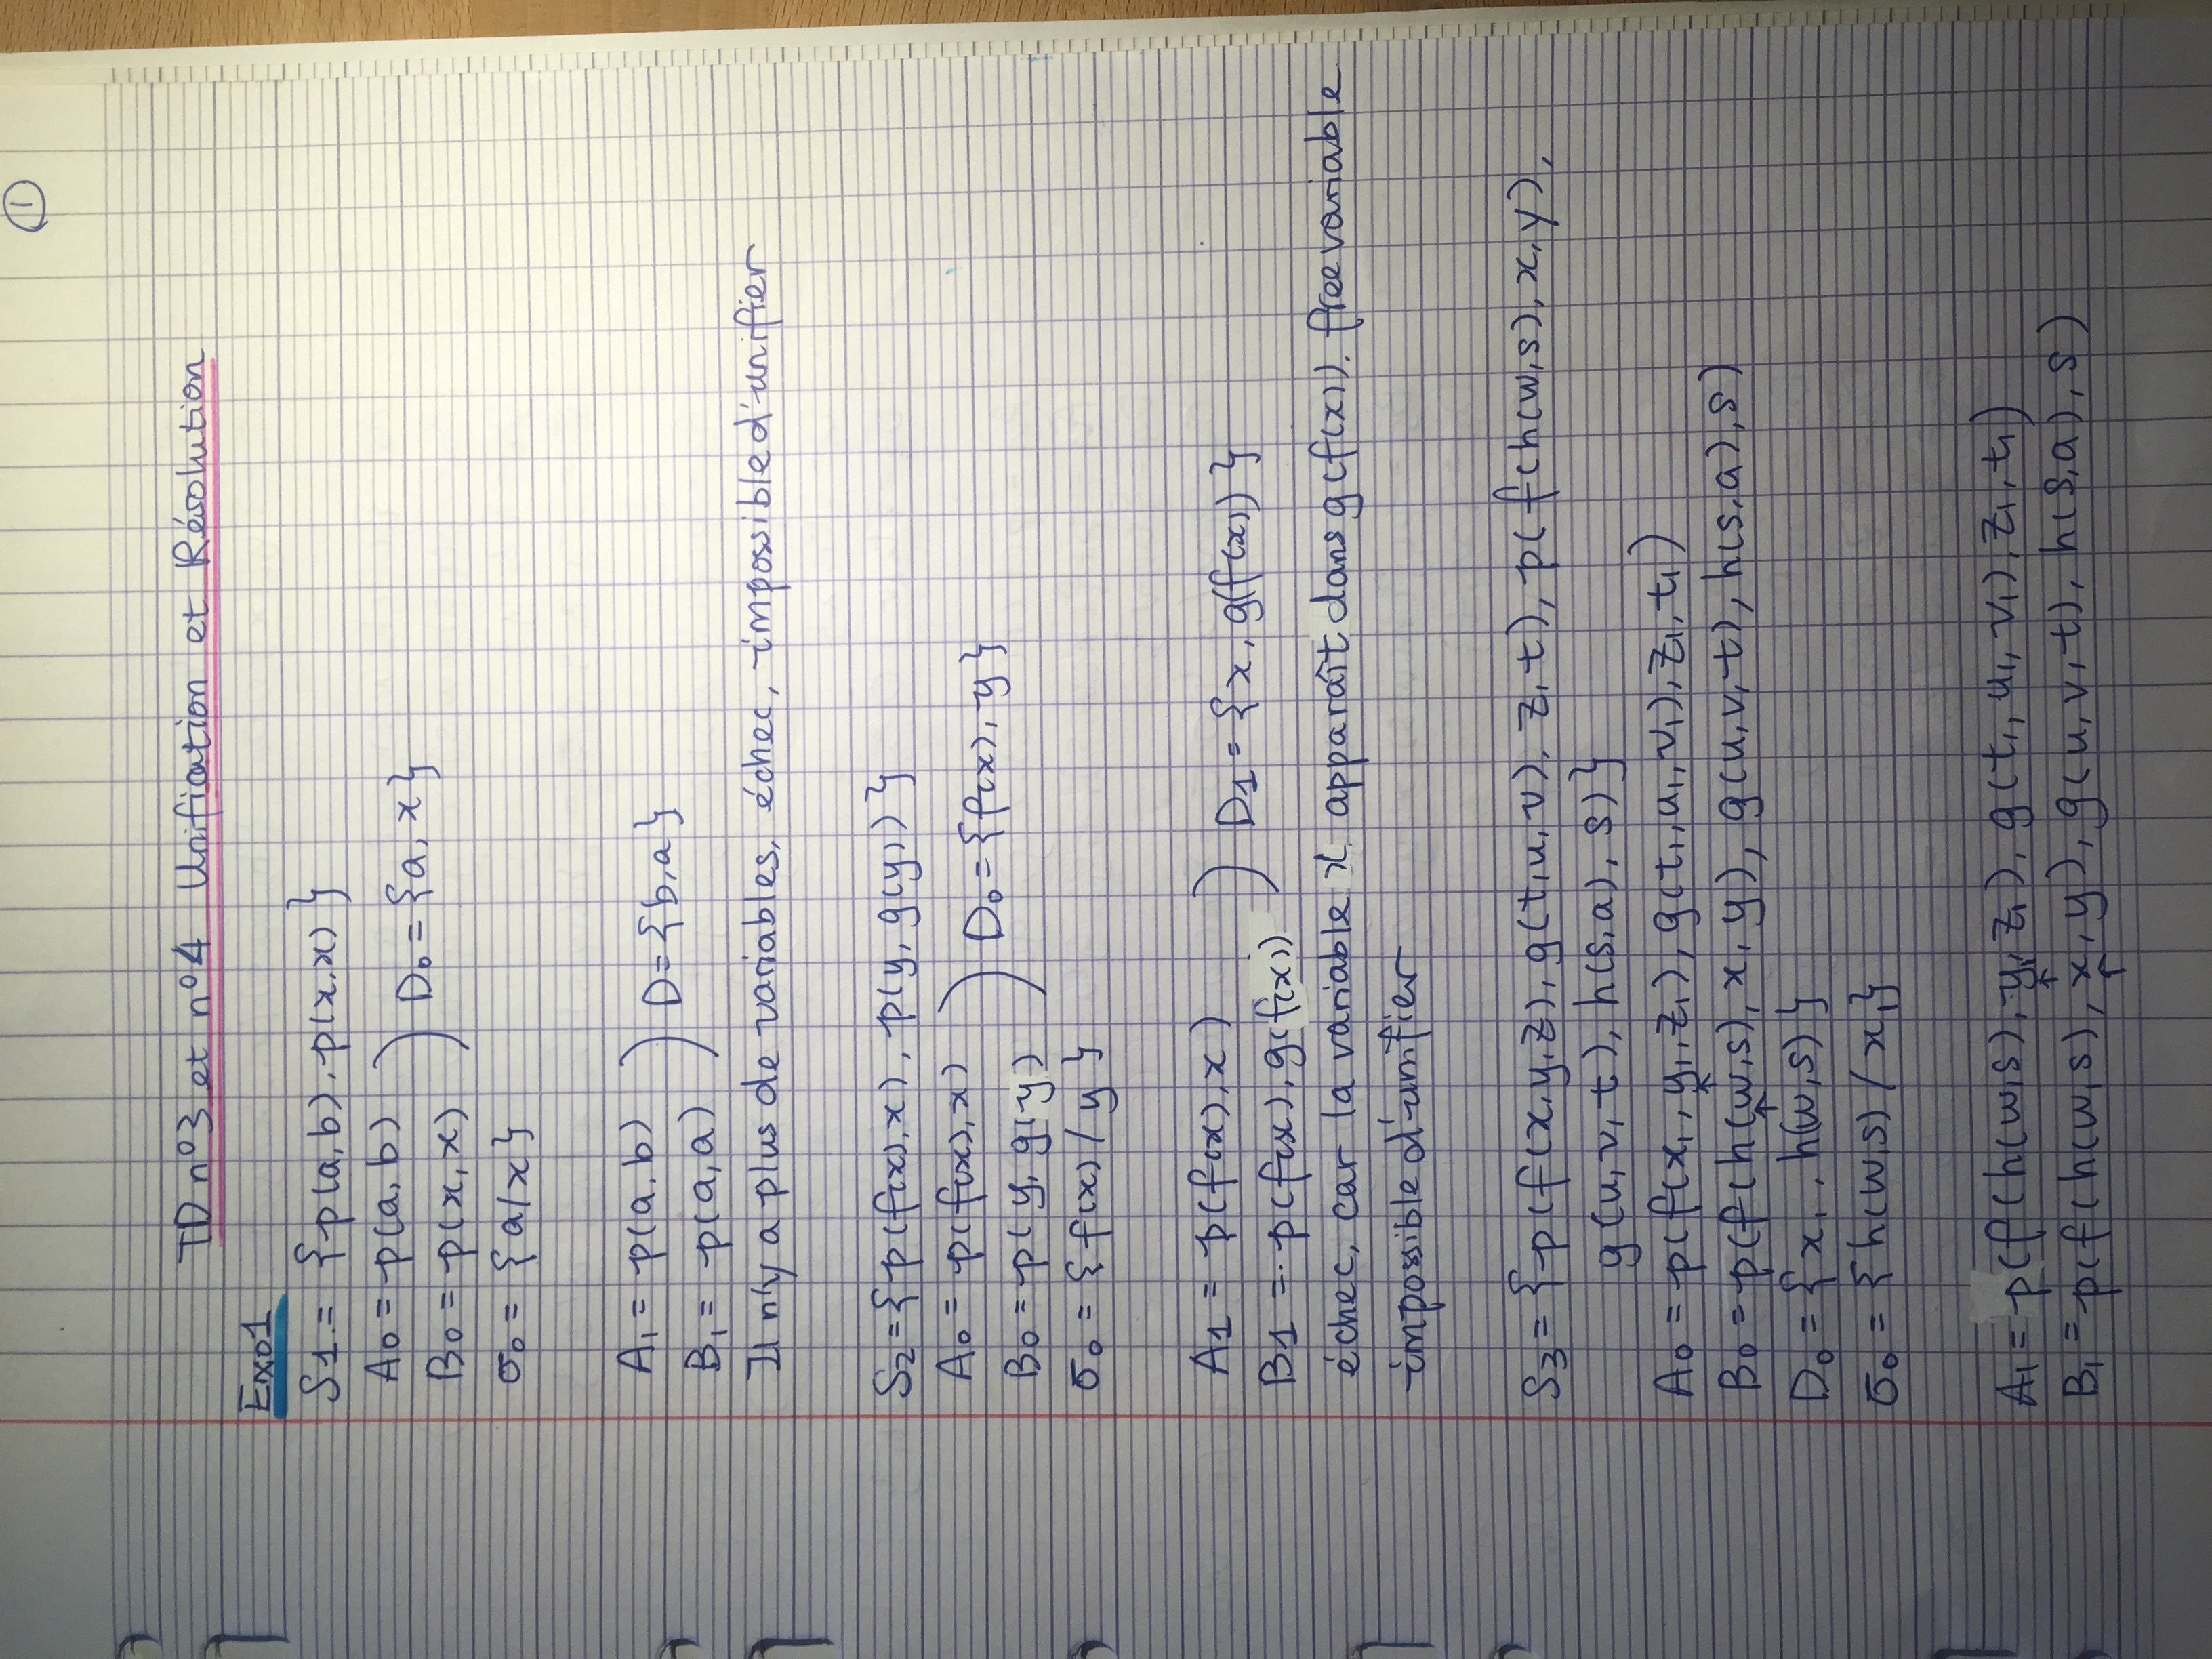 ①
TD n°3 et n°4 Unification et Résolution
Exo1
S1 = {p(a,b), p(x,x)}
A0 = p(a,b)
D0 = {a, x}
B0 = p(x,x)
σ0 = {a/x}
A1 = p(a,b)
D = {b,a}
B1 = p(a,a)
Il n'y a plus de variables, échec, impossible d'unifier
S2 = {p(f(x),x), p(y, g(y))}
A0 = p(f(x),x)
D0 = {f(x), y}
B0 = p(y, g(y)
σ0 = {f(x) / y}
A1 = p(f(x),x)
D1 = {x, g(f(x))}
B1 = p(f(x), g(f(x))
échec, car la variable x apparaît dans g(f(x)). free variable
impossible d'unifier
S3 = {p(f(x,y,z), g(t,u,v), z,t), p(f(h(w,s), x,y),
g(u,v,t), h(s,a), s)}
A0 = p(f(x1, y1, z1), g(t1,u1,v1), z1, t1)
B0 = p(f(h(w,s), x, y), g(u,v,t), h(s,a), s)
D0 = {x1, h(w,s)}
σ0 = {h(w,s) / x1}
A1 = p(f(h(w,s), y1, z1), g(t1, u1, v1), z1, t1)
B1 = p(f(h(w,s), x, y), g(u,v,t), h(s,a), s)